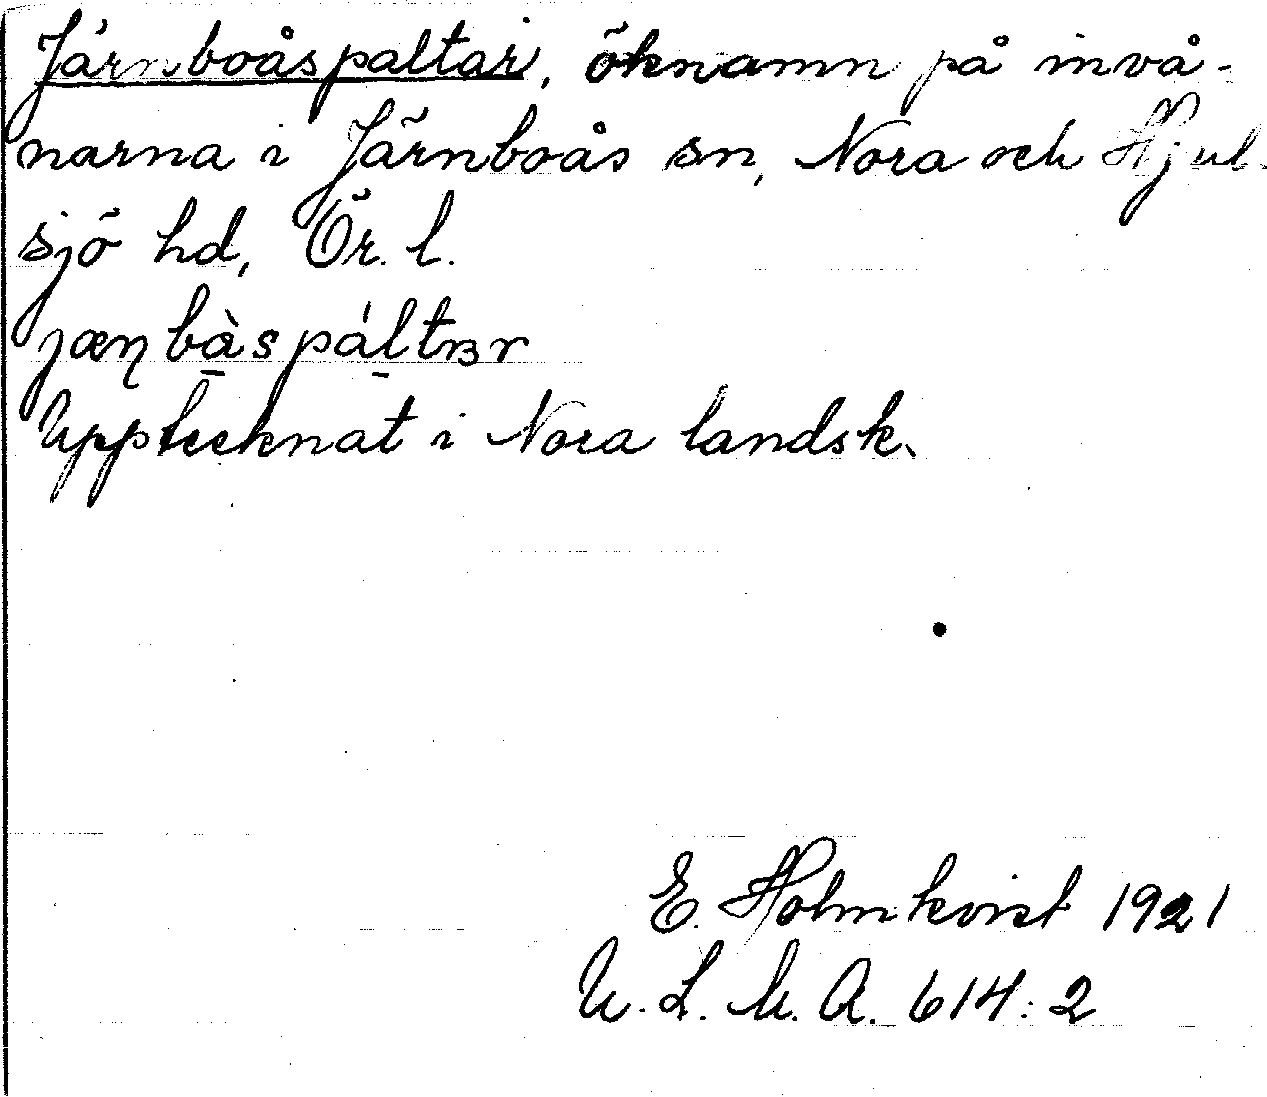 Järnboåspaltar, öknamn på invå-
narna i Järnboås sn, Nora och Hjul-
sjö hd, Ör. l.
jæɳbà̱spáḻtɜr
Upptecknat i Nora landsk.
E. Holmkvist 1921
U. L. M. A. 614:2